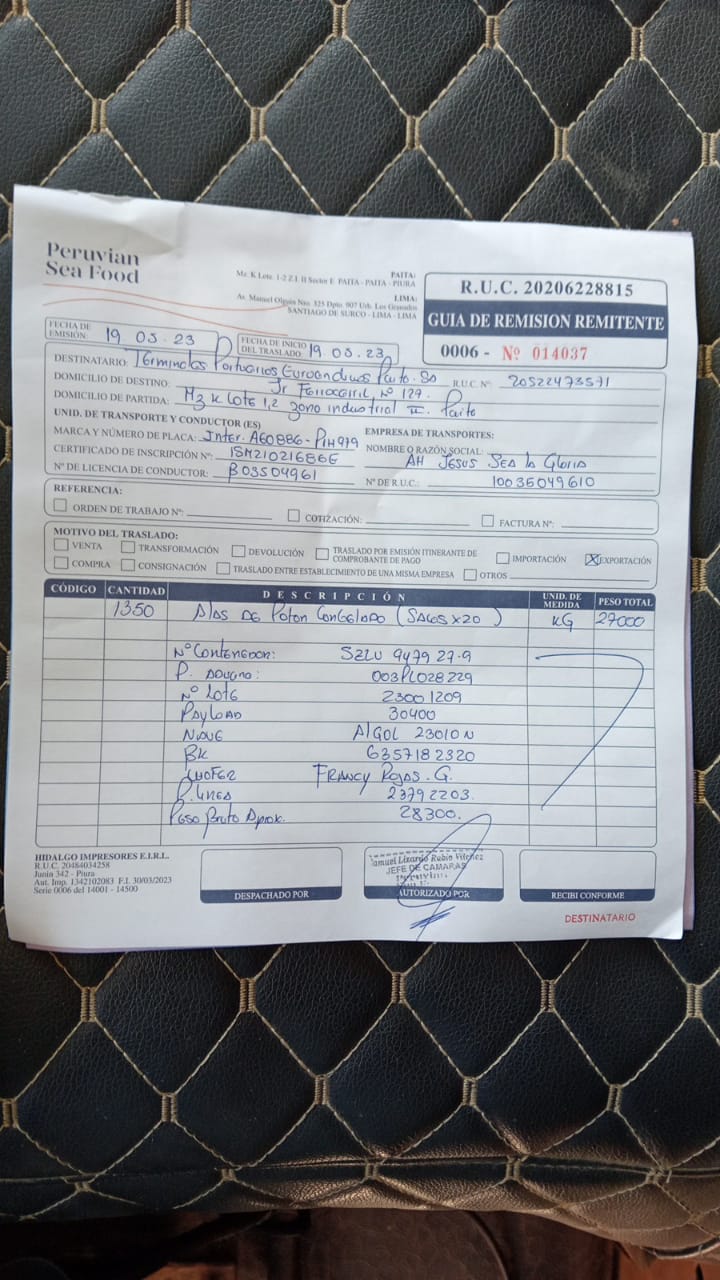 Peruvian
Sea Food
PAITA:
Mz. K Lote. 1-2 Z.I. II Sector F. PAITA - PAITA - PIURA
LIMA:
Av. Manuel Olguin Nro. 325 Dpto. 907 Urb. Los Granados
SANTIAGO DE SURCO - LIMA - LIMA
R.U.C. 20206228815
GUIA DE REMISION REMITENTE
0006 - Nº 014037
FECHA DE EMISIÓN: 19 05 23 FECHA DE INICIO DEL TRASLADO: 19 05 23
DESTINATARIO: Términales Portuarios Euroandinos Paita. Sa
DOMICILIO DE DESTINO: Jr Ferrocarril Nº 127. R.U.C. Nº: 20522473571
DOMICILIO DE PARTIDA: Mz K Lote 1,2 zona industrial II. Paita
UNID. DE TRANSPORTE Y CONDUCTOR (ES)
MARCA Y NÚMERO DE PLACA: Inter. A60886 - P1H979 EMPRESA DE TRANSPORTES:
CERTIFICADO DE INSCRIPCIÓN Nº: 15M21021686E NOMBRE O RAZÓN SOCIAL: AH JESUS SEA la GLORIA
Nº DE LICENCIA DE CONDUCTOR: B03504961 Nº DE R.U.C.: 10035049610
REFERENCIA:
ORDEN DE TRABAJO Nº: COTIZACIÓN: FACTURA Nº:
MOTIVO DEL TRASLADO:
VENTA TRANSFORMACIÓN DEVOLUCIÓN TRASLADO POR EMISIÓN ITINERANTE DE COMPROBANTE DE PAGO IMPORTACIÓN X EXPORTACIÓN
COMPRA CONSIGNACIÓN TRASLADO ENTRE ESTABLECIMIENTO DE UNA MISMA EMPRESA OTROS
CÓDIGO CANTIDAD DESCRIPCIÓN UNID. DE MEDIDA PESO TOTAL
1350 Alas DE Poton CONGELADO (SACOS x 20) KG 27000
Nº Contenedor: SZLU 9479 27-9
P. aduana: 003PL028229
Nº lote 23001209
Payload 30400
NAVE AlGOL 23010 N
BK 6357182320
CHOFER FRANCY ROJAS. G.
P. linea 23792203
Peso Bruto Aprox. 28300.
HIDALGO IMPRESORES E.I.R.L.
R.U.C. 20484034258
Junin 342 - Piura
Aut. Imp. 1342102083 F.I. 30/03/2023
Serie 0006 del 14001 - 14500
DESPACHADO POR
Samuel Lizardo Rubio Vilchez
JEFE DE CAMARAS
AUTORIZADO POR
RECIBI CONFORME
DESTINATARIO